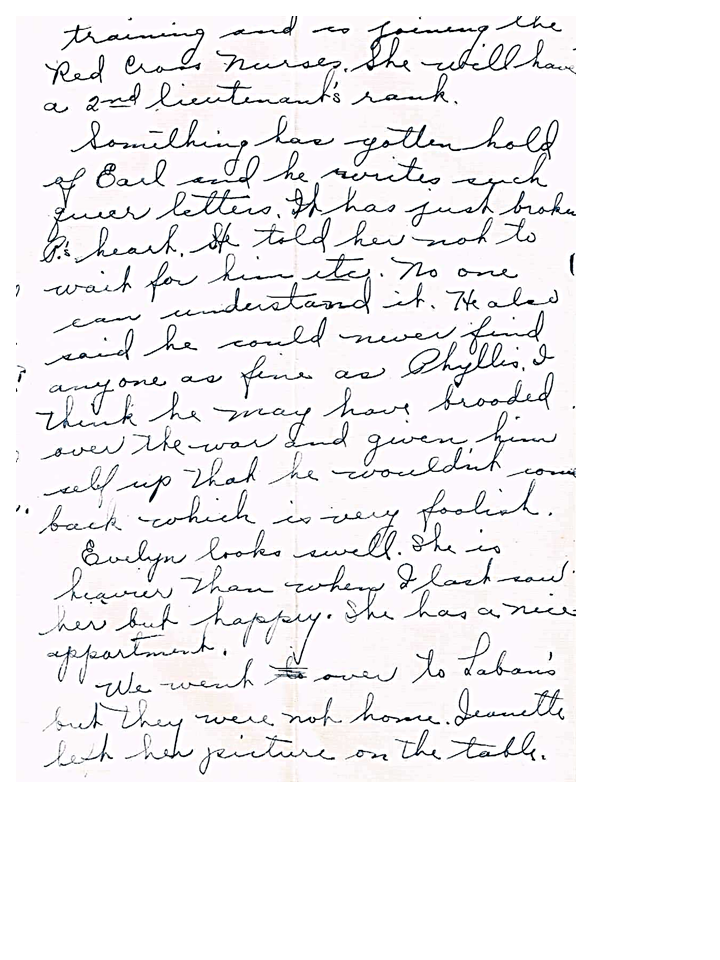 training and is joining the
Red Cross Nurses. She will have
a 2nd lieutenant's rank.
Something has gotten hold
of Earl and he writes such
queer letters. It has just broken
P.'s heart. He told her not to
wait for him etc. No one
can understand it. He also
said he could never find
anyone as fine as Phyllis. I
think he may have brooded
over the war and given him
self up that he wouldn't come
back which is very foolish.
Evelyn looks swell. She is
heavier than when I last saw
her but happy. She has a nice
appartment.
We went over to Laban's
but they were not home. Jeanette
left her picture on the table.